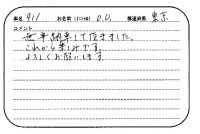 車名 911 お名前(イニシャル) O.O. 都道府県 東京
コメント
無事納車して頂きました。
これから楽しみです。
よろしくお願いします。